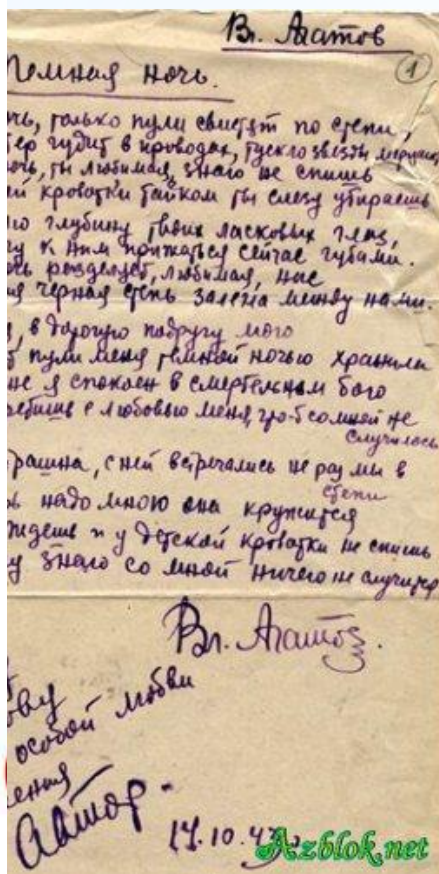 Вл. Агатов
1
Темная ночь.
чь, только пули свистят по степи,
тер гудит в проводах, тускло звезды мерцают
очь, ты любимая, знаю не спишь
й кроватки тайком ты слезу утираешь
ю глубину твоих ласковых глаз,
у к ним прижаться сейчас губами.
очь разделяет, любимая, нас
я черная степь залегла между нами.
, в дорогую подругу мою
пули меня темной ночью хранила
не я спокоен в смертельном бою
с любовью меня, что-б со мной не
случилось
рашна, с ней встречались не раз мы в
степи
надо мною она кружится
ждешь и у детской кроватки не спишь
у знаю со мной ничего не случится
Вл. Агатов.
ову
особой любви
ения
Автор.
17.10.43
Azblok.net